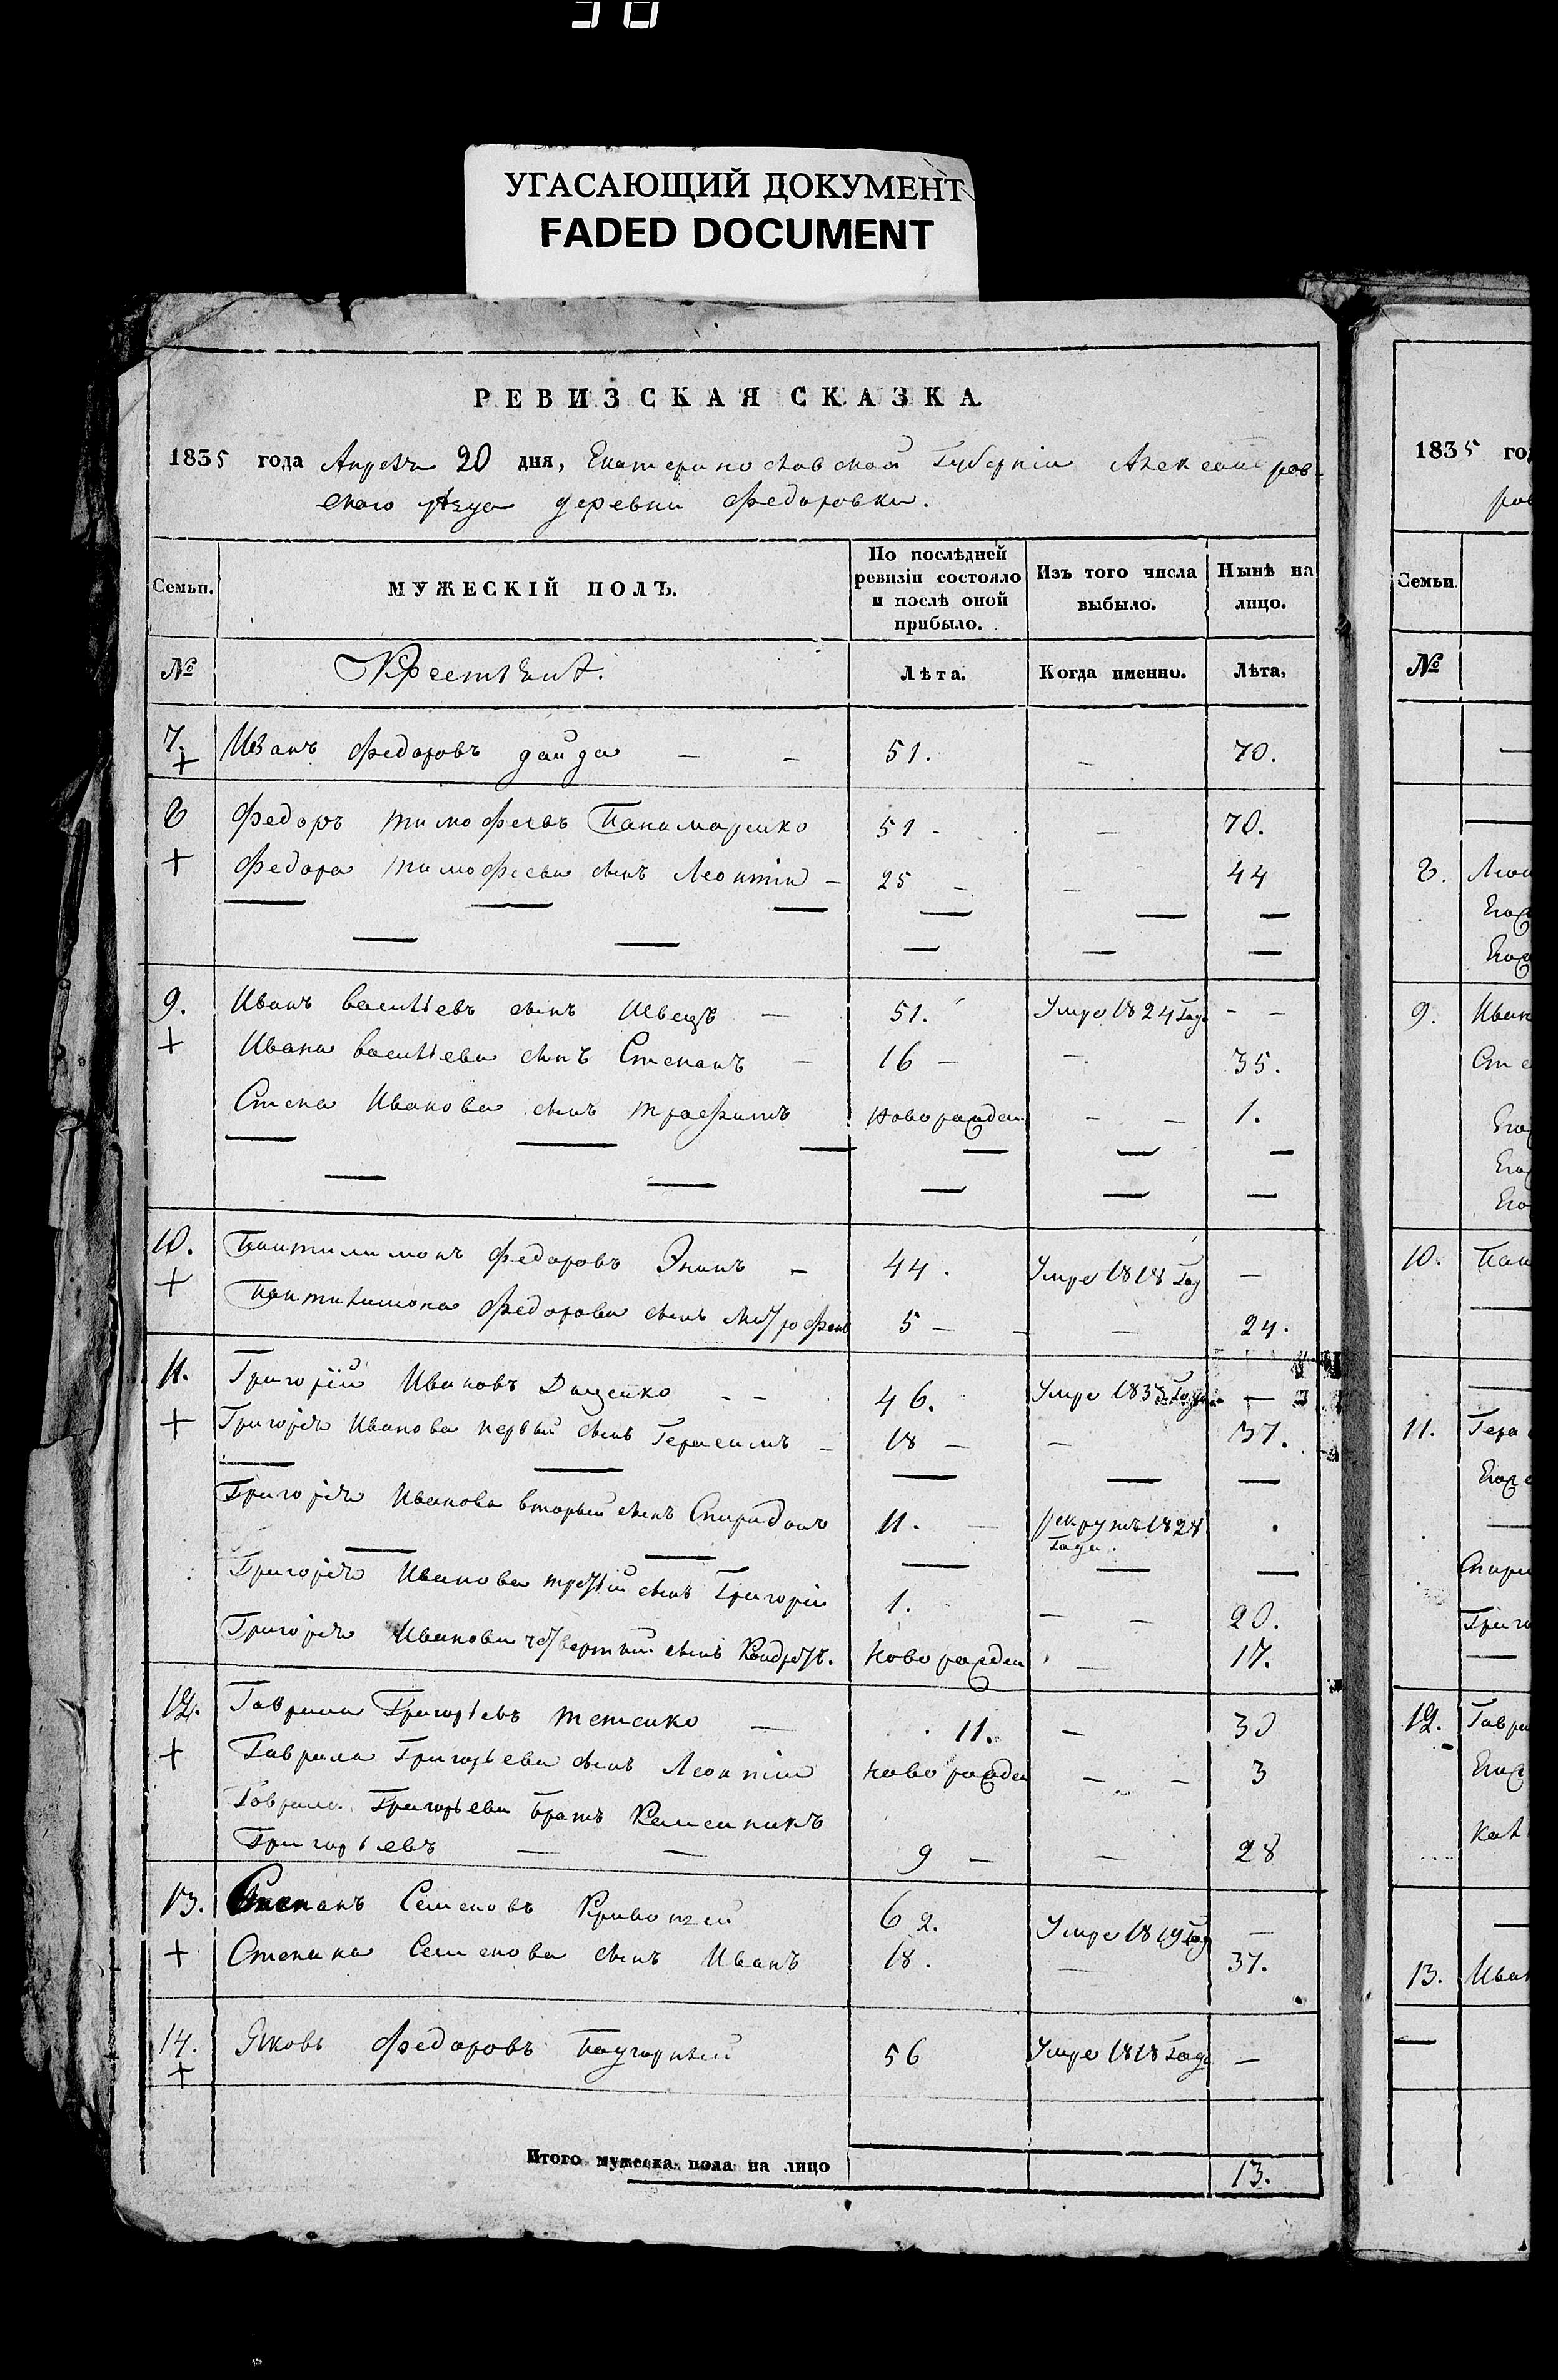 УГАСАЮЩИЙ ДОКУМЕНТ
FADED DOCUMENT
РЕВИЗСКАЯ СКАЗКА
1835 года Апреля 20 дня, Екатеринославской Губерніи Александров-
скаго уезда деревни Федоровки.
Семьи. МУЖЕСКІЙ ПОЛЪ. По послѣдней ревизіи состояло и послѣ оной прибыло. Изъ того числа выбыло. Нынѣ на лицо.
№ Крестьянѣ. Лѣта. Когда именно. Лѣта.
7. Иванъ Федоровъ Гайда — — 51. — 70.
+
8 Федоръ Тимофеевъ Панамаренко 51 - — 70.
+ Федора Тимофеева сынъ Леонтій — 25 — — 44
9. Иванъ Васильевъ сынъ Швецъ — 51. Умре 1824 Года - -
+ Ивана Васильева сынъ Степанъ — 16 — — 35.
Степа Иванова сынъ Трафимъ Новорожден. — — 1.
10. Пантилимонъ Федоровъ — 44. Умре 1818 Год —
+ Пантилимона Федорова сынъ Митрофанъ 5 — — — 24.
11. Григорій Ивановъ Даценко - - 46. Умре 1835 Года —
+ Григорія Иванова первый сынъ Герасимъ — 18 — — 37.
Григорія Иванова вторый сынъ Спиридонъ 11. — рекрутъ 1828
Года.
Григорія Иванова третій сынъ Григорій 1. — — 20.
Григорія Иванова четвертый сынъ Кондратъ. Новорожден — 17.
12. Гаврила Григорьевъ Тетенко — 11. — 30
+ Гаврила Григорьева сынъ Леонтій Новорожден — — 3
Гаврила Григорьева братъ
Григорьевъ — — 9 — — 28
13. Степанъ Семеновъ 62. Умре 1819 Год —
+ Степана Семенова сынъ Иванъ 18. — 37.
14. Яковъ Федоровъ Пагорный 56 Умре 1818 Года —
+
Итого мужеска пола на лицо 13.
1835 го
ров
Семьи
№
8. Леон
Его
Его
9. Иван
Сте
Его
Его
Его
10. Пан
11. Гера
Его
Спири
Григо
12. Гаври
Его
Кал
13. Иван